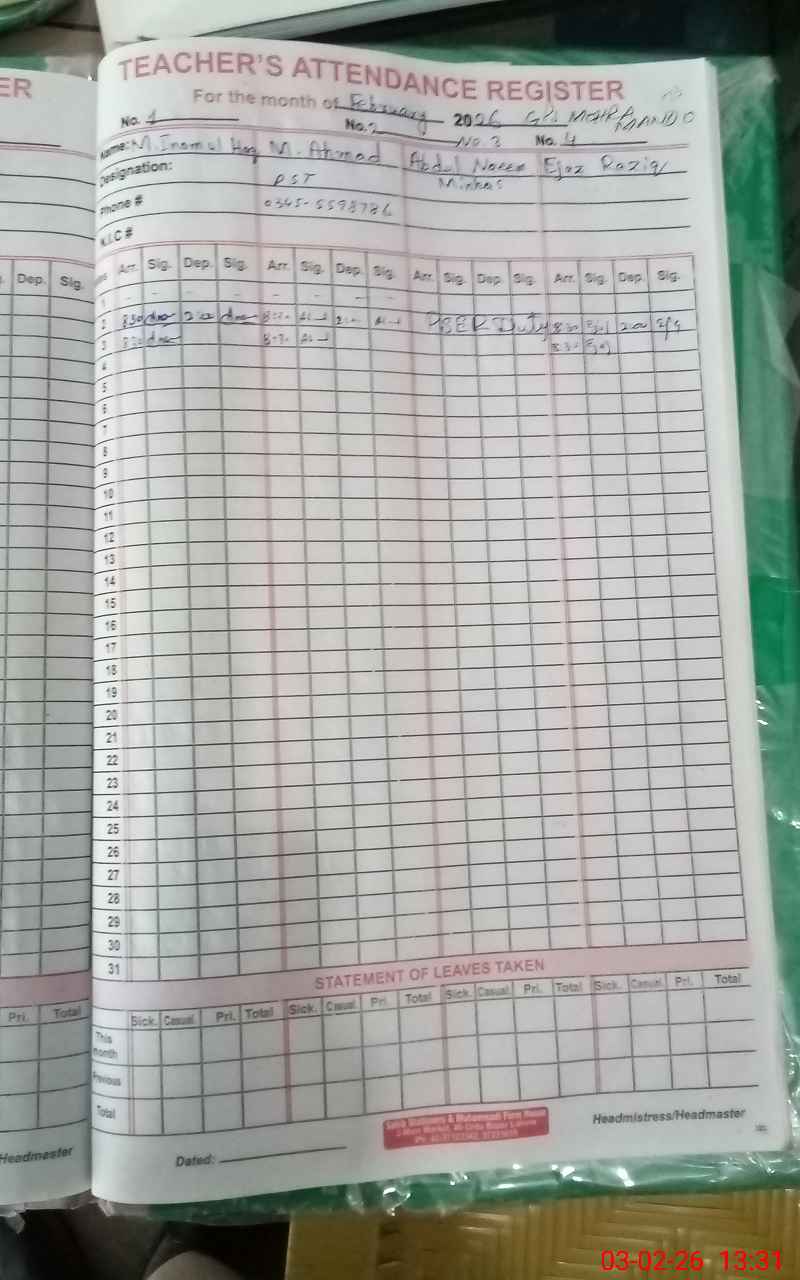 TEACHER'S ATTENDANCE REGISTER
For the month of February 2026 GPS MOHRA MANDO
No. 1 No. 2 No. 3 No. 4
Name: M. Inam ul Haq M. Ahmad Abdul Naeem Minhas Ejaz Raziq
Designation: PST
Phone # 0345-5598786
N.I.C #
Arr. Sig. Dep. Sig. Arr. Sig. Dep. Sig. Arr. Sig. Dep. Sig. Arr. Sig. Dep. Sig.
1 - - - - - - - -
2 8:30 2:00 8:30 2:00 Duty 8:30 Ejaz 2:00
3 8:30 8:30 8:30 Ejaz
4
5
6
7
8
9
10
11
12
13
14
15
16
17
18
19
20
21
22
23
24
25
26
27
28
29
30
31
STATEMENT OF LEAVES TAKEN
Sick. Casual. Pri. Total Sick. Casual. Pri. Total Sick. Casual. Pri. Total Sick. Casual. Pri. Total
This month
Previous
Total
Headmistress/Headmaster
Dated:
ER
Dep. Sig.
Pri. Total
Headmaster
03-02-26 13:31